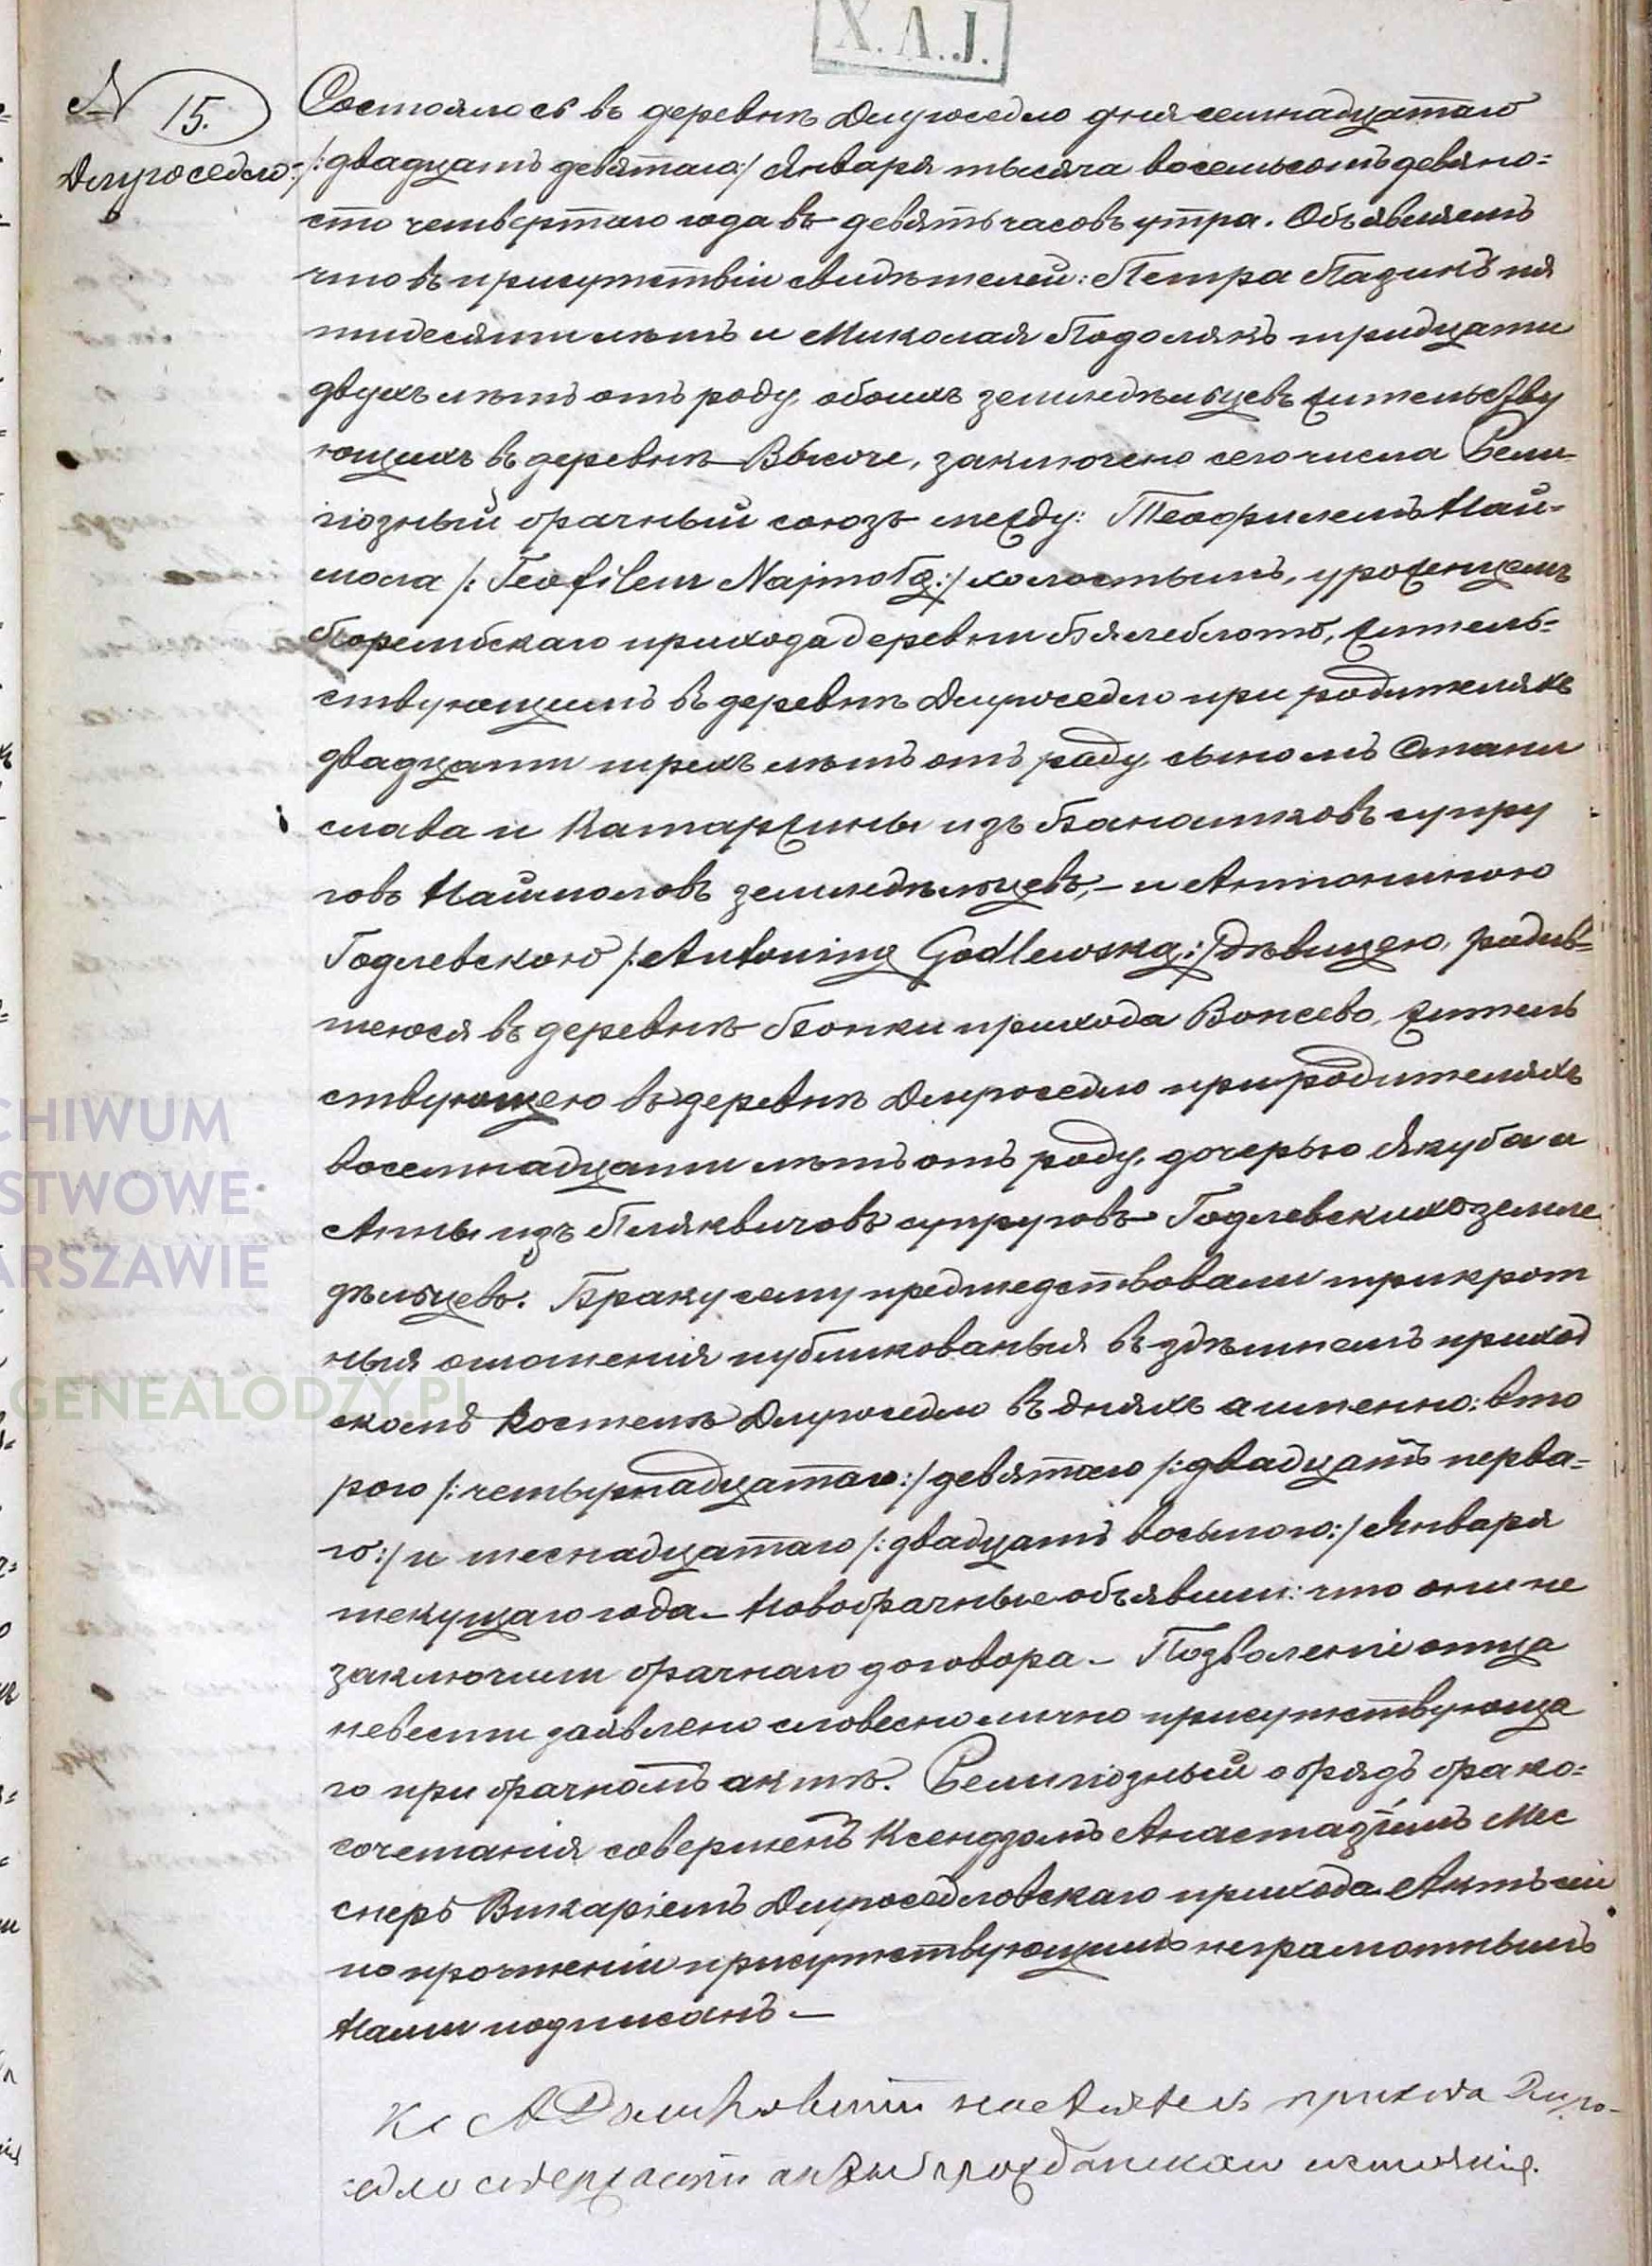 X. A. J.
N 15.
Длугоседло:
Состоялось въ деревнѣ Длугоседло дня семнадцатаго
/:двадцать девятаго:/ Января тысяча восемьсотъ девяно=
сто четвертаго года въ девять часовъ утра. Объявляемъ
что въ присутствіи свидѣтелей: Петра Пазикъ пя
тидесяти лѣтъ и Миколая Подолякъ тридцати
двухъ лѣтъ отъ роду, обоихъ земледѣльцевъ жительству
ющихъ въ деревнѣ , заключено сего числа Рели-
гіозный брачный союзъ между: Теофилемъ Най-
мола /: Teofilem Najmołą:/ холостымъ, уроженцемъ
Порембскаго прихода деревни Бялеблото, житель=
ствующимъ въ деревнѣ Длугоседло при родителяхъ
двадцати трехъ лѣтъ отъ роду, сыномъ Стани
слава и Катаржины изъ супру
говъ Наймоловъ земледѣльцевъ,- и Антониною
Годлевскою /: Antoniną Godlewską:/ дѣвицею, родив=
шеюся въ деревнѣ прихода Вонсево, житель
ствующею въ деревнѣ Длугоседло при родителяхъ
восемнадцати лѣтъ отъ роду, дочерью Якуба и
Анны изъ супруговъ Годлевскихъ земле
дѣльцевъ. Браку сему предшедствовали трикрот
ныя оглошенія публикованыя въ здѣшнемъ приход
скомъ Костелѣ Длугоседло въ дняхъ а именно: вто
рого /:четырнадцатаго:/ девятаго /:двадцать перва=
го:/ и шеснадцатаго /:двадцать восьмого:/ Января
текущаго года_ Новобрачные объявили: что они не
заключили брачнаго договора_ Позволеніе отца
невести заявлено словесно лично присутствующа
го при брачномъ актѣ. Религіозный обрядъ брако=
сочетанія совершенъ Ксендзомъ Анастазіемъ Мес
снеръ Викаріемъ Длугоседловскаго прихода. Актъ сей
по прочтеніи присутствующимъ неграмотнымъ
Нами подписанъ_
Кс А настоятель прихода Длуго-
седло содержащій акты гражданскаго состоянія.
ARCHIWUM
PAŃSTWOWE
WARSZAWIE
GENEALODZY.PL